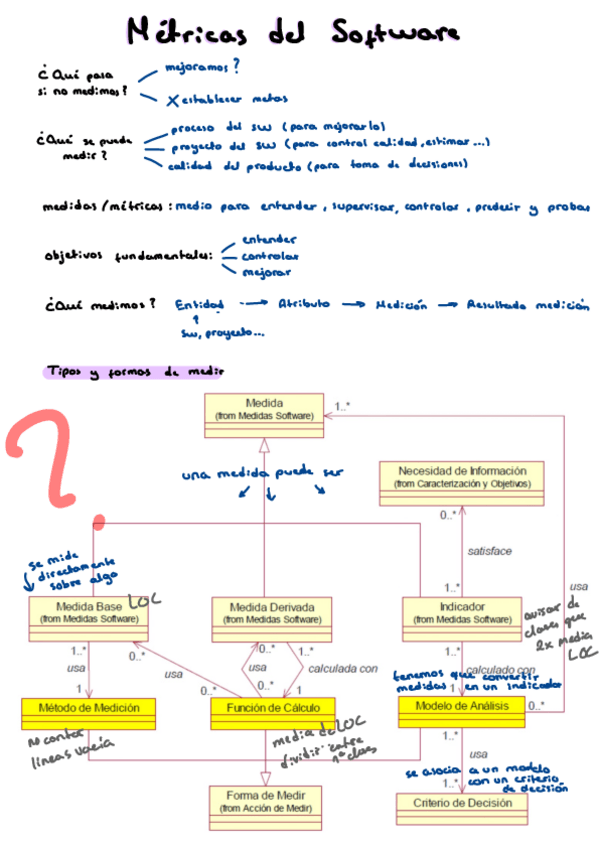 Métricas del Software
¿Qué pasa
si no medimos?
mejoramos?
X establecer metas
¿Qué se puede
medir?
proceso del sw (para mejorarlo)
proyecto del sw (para control calidad, estimar...)
calidad del producto (para toma de decisiones)
medidas/métricas: medio para entender, supervisar, controlar, predecir y probar
objetivos fundamentales:
entender
controlar
mejorar
¿Qué medimos? Entidad → Atributo → Medición → Resultado medición
sw, proyecto...
Tipos y formas de medir
?
Medida
(from Medidas Software)
1..*
una medida puede ser
Necesidad de Información
(from Caracterización y Objetivos)
0..*
satisface
se mide
directamente
sobre algo
1..*
usa
Medida Base
(from Medidas Software)
LOC
Medida Derivada
(from Medidas Software)
Indicador
(from Medidas Software)
avisar de
clases que
2x media
LOC
1..*
usa
1
0..*
usa
0..*
0..*
usa
0..*
1..*
calculada con
1
1..*
calculado con
1
tenemos que convertir
medidas en un indicador
Método de Medición
Función de Cálculo
Modelo de Análisis
0..*
no contar
líneas vacía
media de LOC
dividir entre
nº clases
1..*
usa
1..*
se asocia a un modelo
con un criterio
de decisión
Forma de Medir
(from Acción de Medir)
Criterio de Decisión